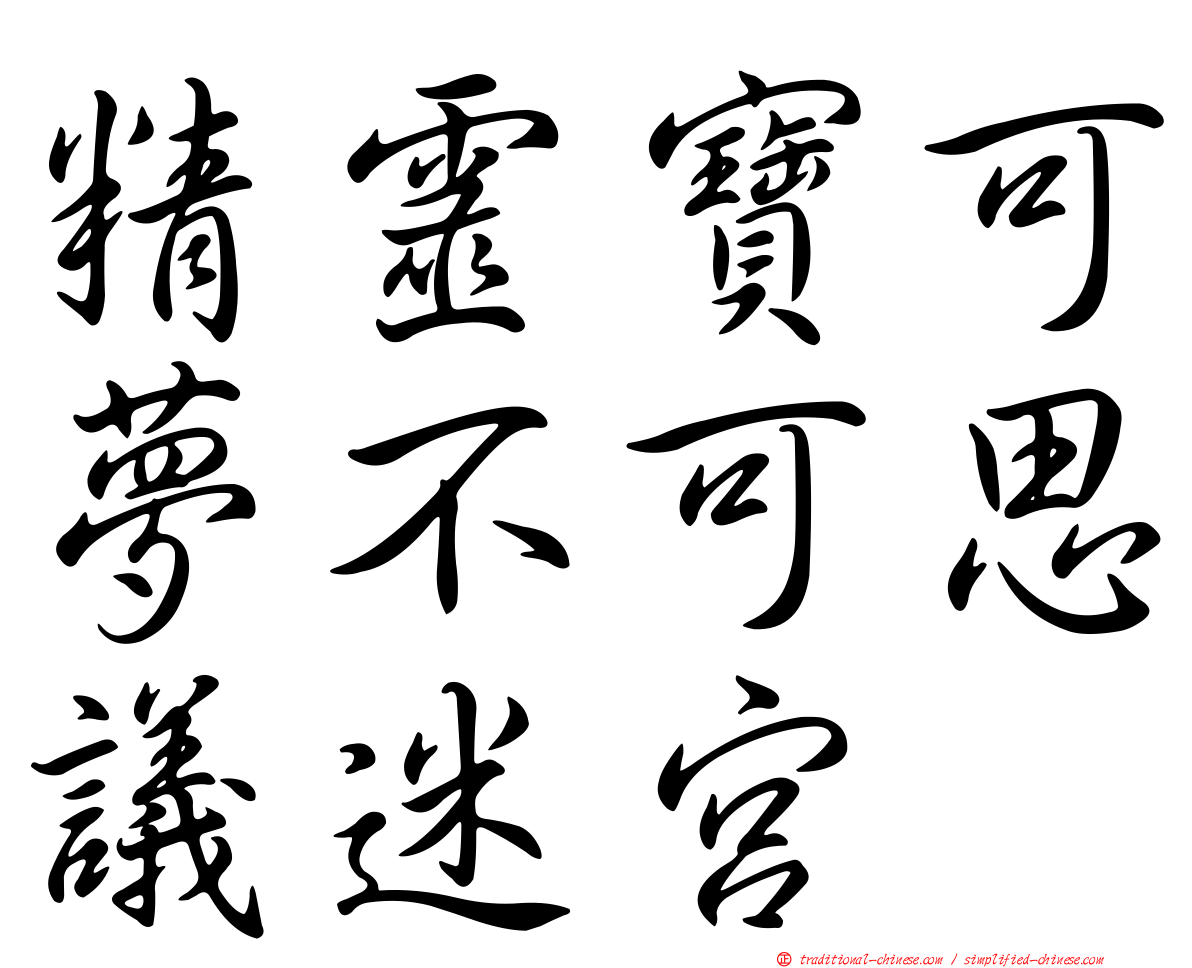 精靈寶可
夢不可思
議迷宮
㊣ traditional-chinese.com / simplified-chinese.com